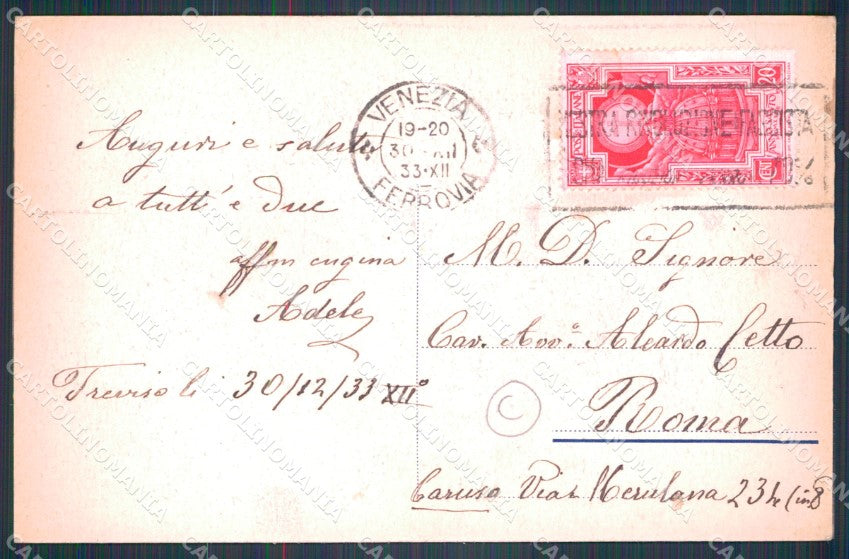 Auguri e saluti
a tutti e due
affm cugina
Adele
Treviso li 30/12/33 XII°
VENEZIA
19-20
30 XII
33·XII
FERROVIA
20
MOSTRA RIVOLUZIONE FASCISTA
M. D. Signore
Cav. Avv.° Aleardo Cetto
Roma
C
Caruso Via Merulana 234 (in 8
CARTOLINOMANIA